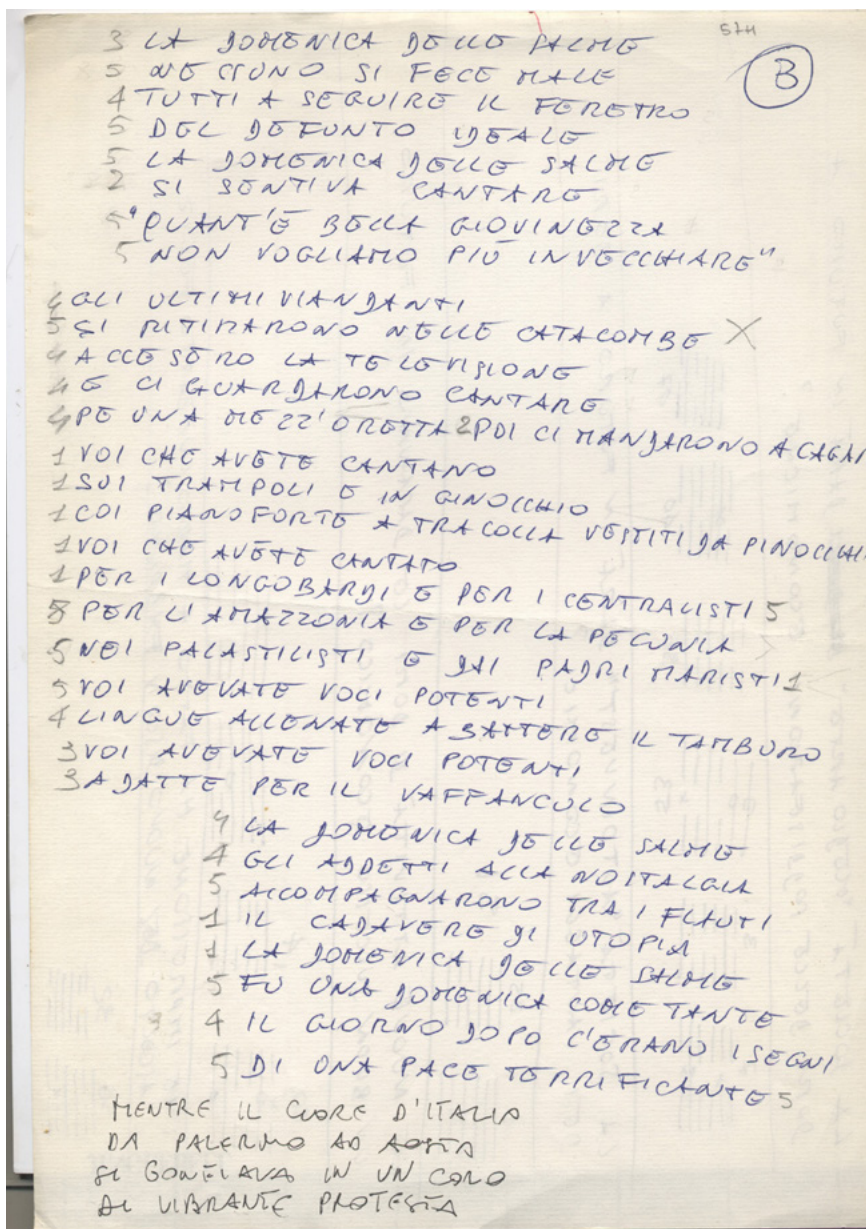 574
B
3 LA DOMENICA DELLE SALME
5 NESSUNO SI FECE MALE
4 TUTTI A SEGUIRE IL FERETRO
5 DEL DEFUNTO IDEALE
5 LA DOMENICA DELLE SALME
2 SI SENTIVA CANTARE
5 "QUANT'È BELLA GIOVINEZZA
5 NON VOGLIAMO PIÙ INVECCHIARE"
4 GLI ULTIMI VIANDANTI
5 SI RITIRARONO NELLE CATACOMBE X
4 ACCESERO LA TELEVISIONE
4 E CI GUARDARONO CANTARE
4 PE UNA MEZZ'ORETTA 2 POI CI MANDARONO A CAGAR
1 VOI CHE AVETE CANTANO
1 SUI TRAMPOLI E IN GINOCCHIO
1 COI PIANOFORTE A TRACOLLA VESTITI DA PINOCCHI
1 VOI CHE AVETE CANTATO
1 PER I LONGOBARDI E PER I CENTRALISTI 5
5 PER L'AMAZZONIA E PER LA PECUNIA
5 NEI PALASTILISTI E DAI PADRI MARISTI 1
5 VOI AVEVATE VOCI POTENTI
4 LINGUE ALLENATE A BATTERE IL TAMBURO
3 VOI AVEVATE VOCI POTENTI
3 ADATTE PER IL VAFFANCULO
4 LA DOMENICA DELLE SALME
4 GLI ADDETTI ALLA NOSTALGIA
5 ACCOMPAGNARONO TRA I FLAUTI
1 IL CADAVERE DI UTOPIA
1 LA DOMENICA DELLE SALME
5 FU UNA DOMENICA COME TANTE
4 IL GIORNO DOPO C'ERANO I SEGNI
5 DI UNA PACE TERRIFICANTE 5
MENTRE IL CUORE D'ITALIA
DA PALERMO AD AOSTA
SI GONFIAVA IN UN CORO
DI VIBRANTE PROTESTA